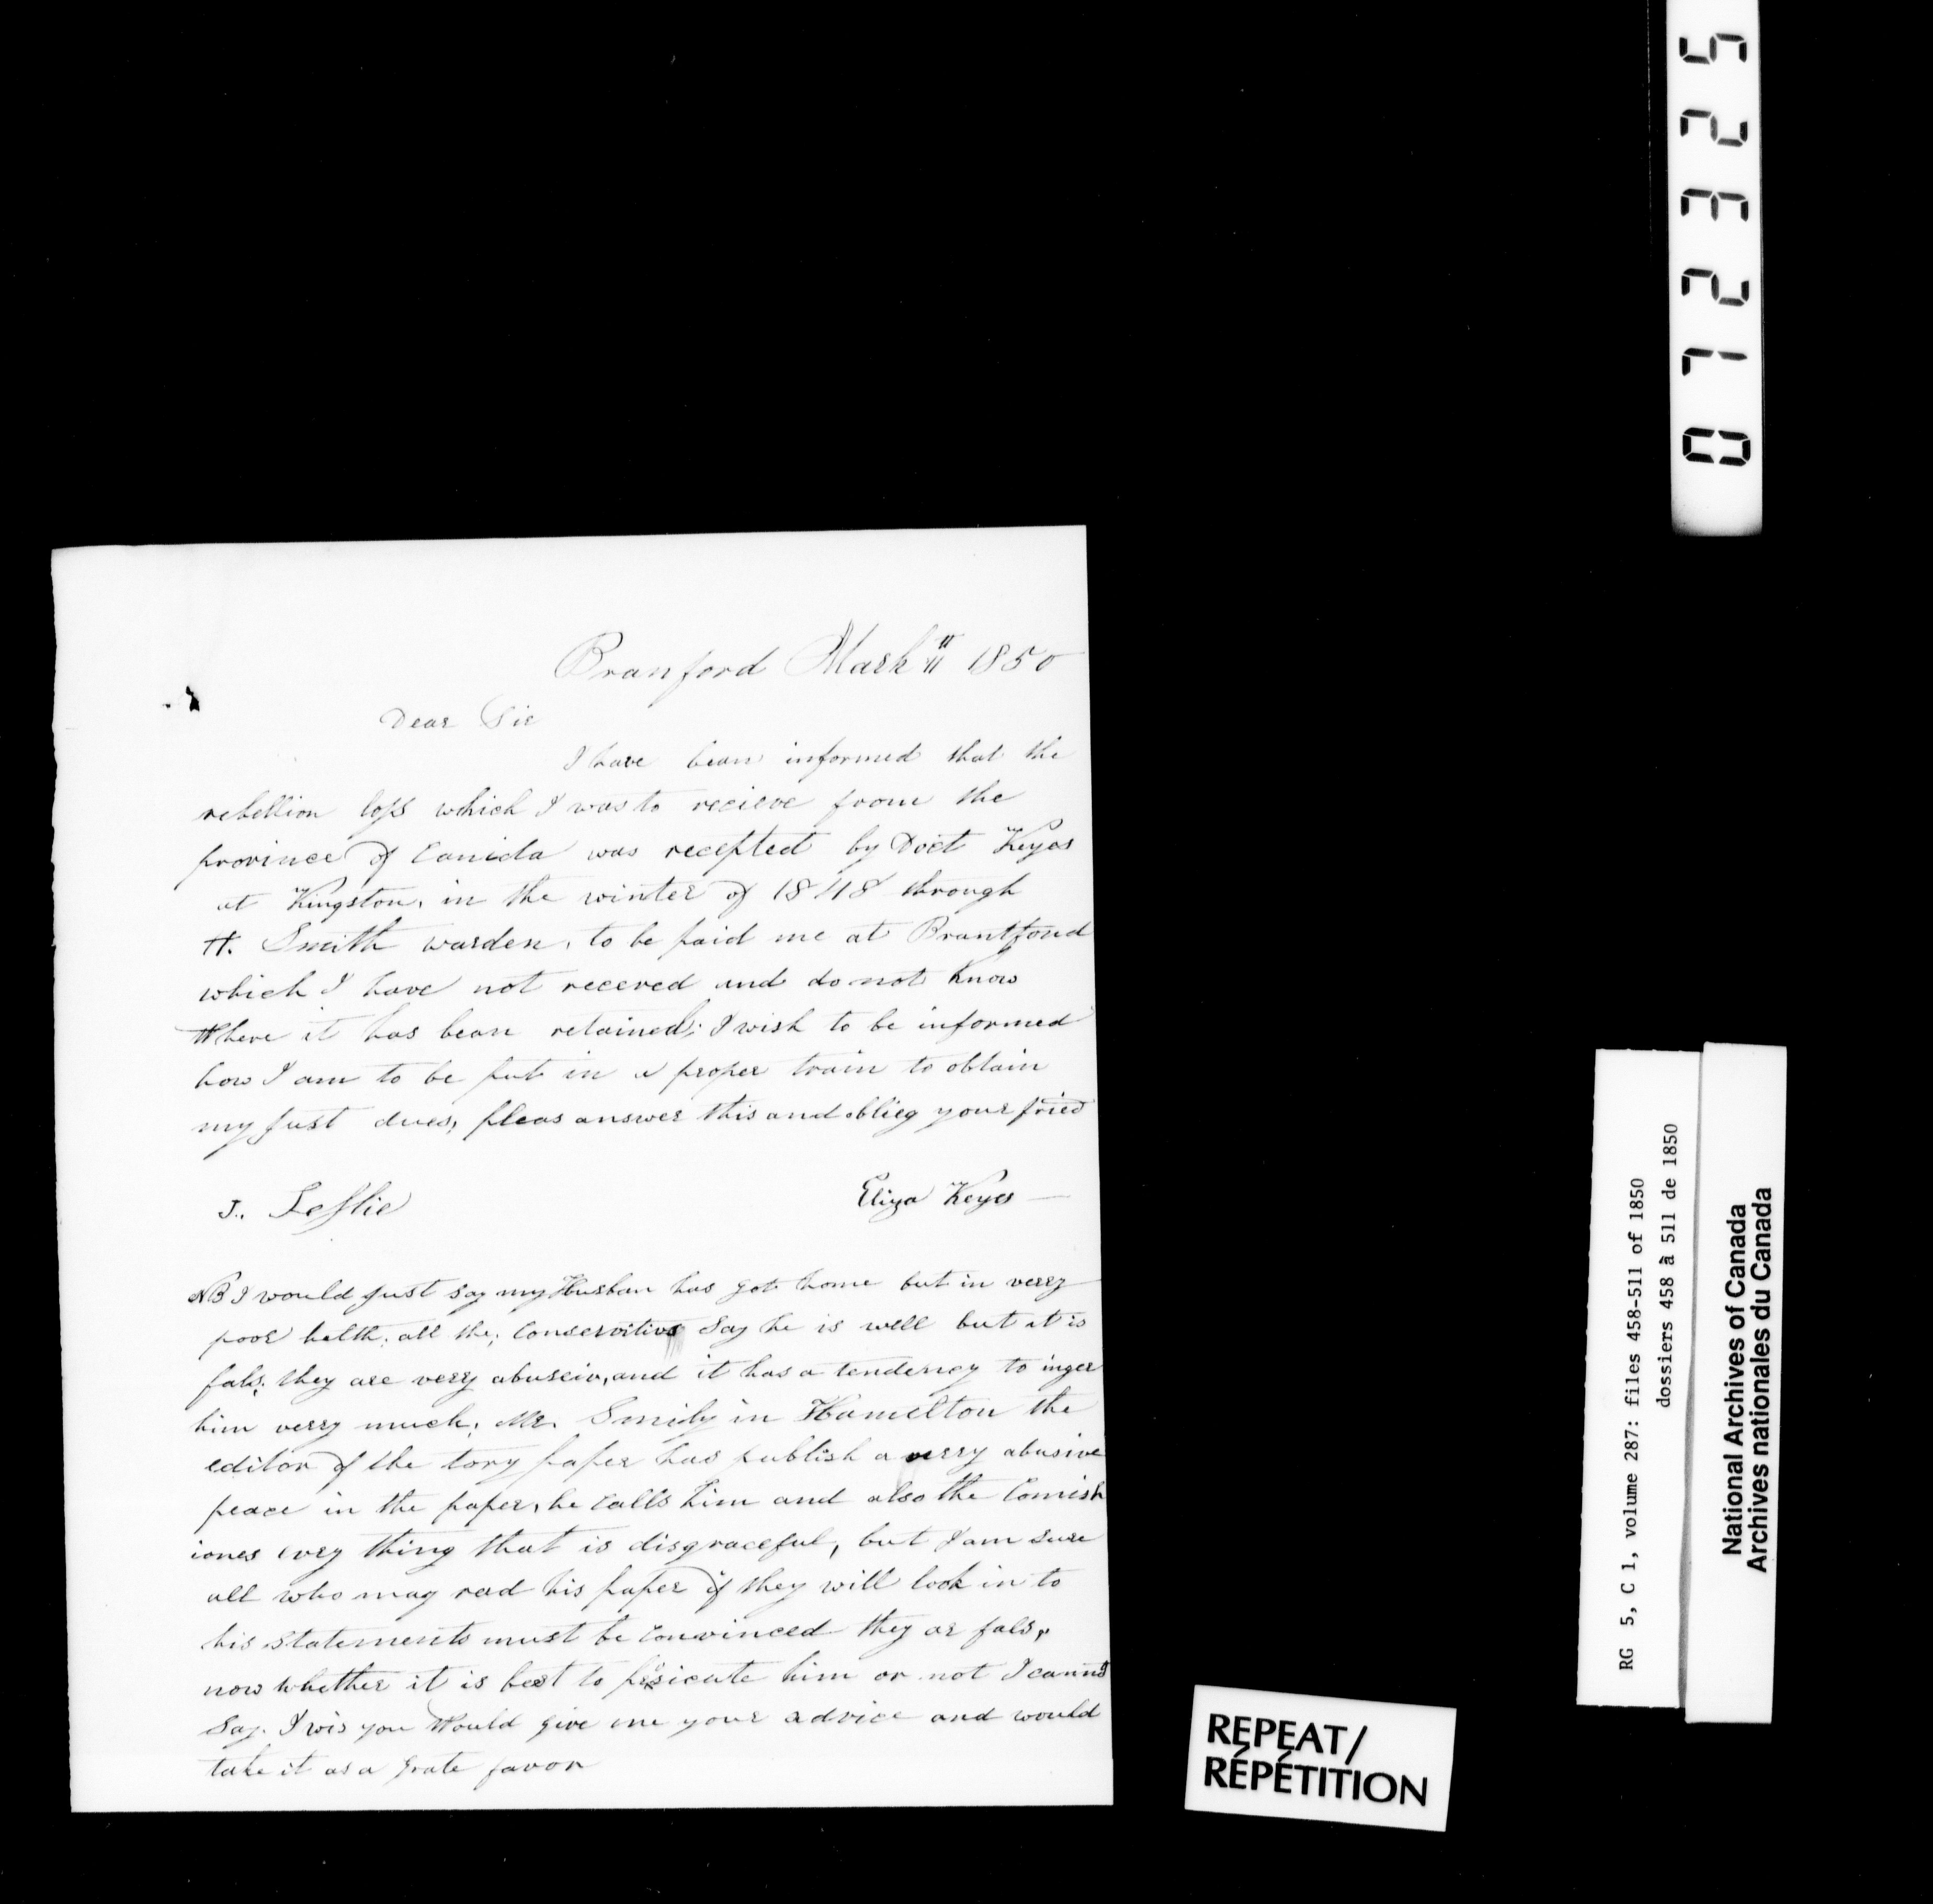 Branford Marh 11 1850
Dear Sir
I have bean informed that the
rebellion loss which I was to recieve from the
province of Canida was recepted by Doct Keyes
at Kingston, in the winter of 1848 through
H. Smith warden, to be paid me at Brantford
which I have not recered and do not know
Where it has bean retained; I wish to be informed
how I am to be put in a proper train to obtain
my just dues, pleas answer this and oblieg your fried
J. Leslie
Eliza Keyes
NB I would just say my Husban has got home but in verry
poor helth; all the; Conservitivs Say he is well but it is
fals; they are very abuseiv, and it has a tendency to inger
him verry much; Mr. Smily in Hamelton the
editor of the tory paper has publish a verry abusive
peace in the paper, he calls him and also the Comish
iones evry thing that is disgraceful, but I am sure
all who may read his paper if they will look in to
his statements must be convinced they ar fals,
now whether it is best to persicute him or not I cannot
Say. I wis you Would give me your advice and would
take it as a grate favor
072325
RG 5, C 1, volume 287: files 458-511 of 1850
dossiers 458 à 511 de 1850
National Archives of Canada
Archives nationales du Canada
REPEAT/
RÉPÉTITION